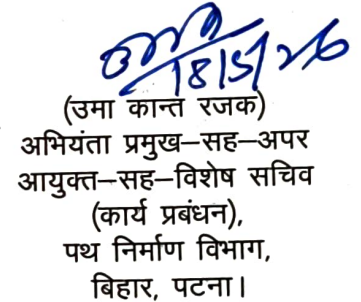 18/5/26
(उमा कान्त रजक)
अभियंता प्रमुख–सह–अपर
आयुक्त–सह–विशेष सचिव
(कार्य प्रबंधन),
पथ निर्माण विभाग,
बिहार, पटना।